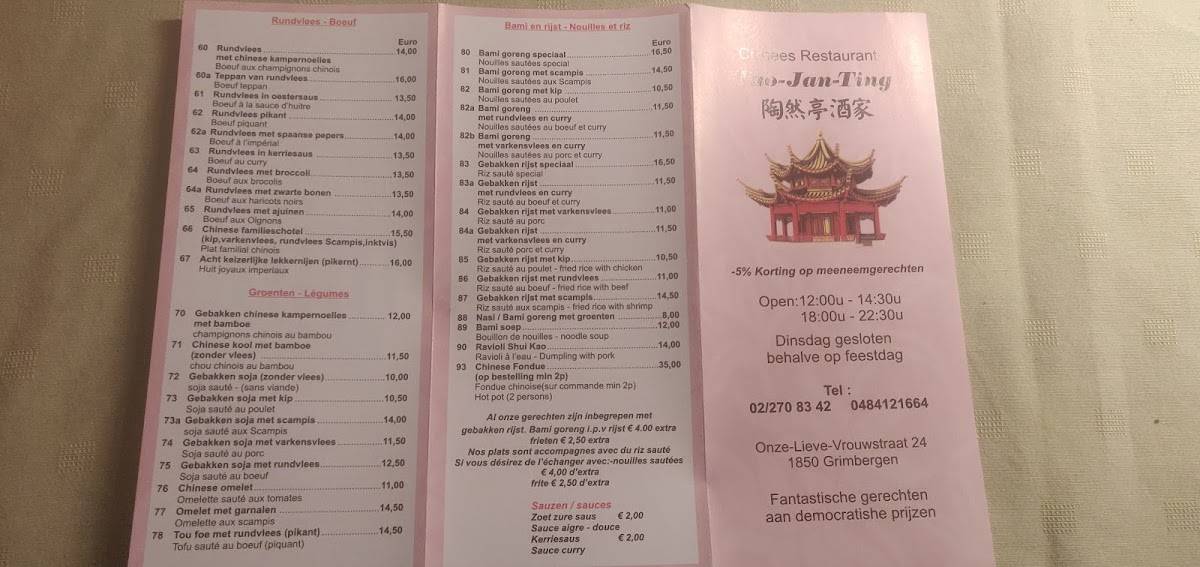 Rundvlees - Boeuf
Euro
60 Rundvlees 14,00
met chinese kampernoelies
Boeuf aux champignons chinois
60a Teppan van rundvlees 16,00
Boeuf teppan
61 Rundvlees in oestersaus 13,50
Boeuf à la sauce d'huître
62 Rundvlees pikant 14,00
Boeuf piquant
62a Rundvlees met spaanse pepers 14,00
Boeuf à l'impérial
63 Rundvlees in kerriesaus 13,50
Boeuf au curry
64 Rundvlees met broccoli 13,50
Boeuf aux brocolis
64a Rundvlees met zwarte bonen 13,50
Boeuf aux haricots noirs
65 Rundvlees met ajuinen 14,00
Boeuf aux Oignons
66 Chinese familieschotel 15,50
(kip,varkenvlees, rundvlees Scampis,inktvis)
Plat familial chinois
67 Acht keizerlijke lekkernijen (pikernt) 16,00
Huit joyaux imperiaux
Groenten - Légumes
70 Gebakken chinese kampernoelles 12,00
met bamboe
champignons chinois au bambou
71 Chinese kool met bamboe
(zonder vlees) 11,50
chou chinois au bambou
72 Gebakken soja (zonder vlees) 10,00
soja sauté - (sans viande)
73 Gebakken soja met kip 10,50
Soja sauté au poulet
73a Gebakken soja met scampis 14,00
soja sauté aux Scampis
74 Gebakken soja met varkensvlees 11,50
Soja sauté au porc
75 Gebakken soja met rundvlees 12,50
Soja sauté au boeuf
76 Chinese omelet 11,00
Omelette sauté aux tomates
77 Omelet met garnalen 14,50
Omelette aux scampis
78 Tou foe met rundvlees (pikant) 14,50
Tofu sauté au boeuf (piquant)
Bami en rijst - Nouilles et riz
Euro
80 Bami goreng speciaal 16,50
Nouilles sautées special
81 Bami goreng met scampis 14,50
Nouilles sautées aux Scampis
82 Bami goreng met kip 10,50
Nouilles sautées au poulet
82a Bami goreng 11,50
met rundvlees en curry
Nouilles sautées au boeuf et curry
82b Bami goreng 11,50
met varkensvlees en curry
Nouilles sautées au porc et curry
83 Gebakken rijst speciaal 16,50
Riz sauté special
83a Gebakken rijst 11,50
met rundvlees en curry
Riz sauté au boeuf et curry
84 Gebakken rijst met varkensvlees 11,00
Riz sauté au porc
84a Gebakken rijst 11,50
met varkensvlees en curry
Riz sauté porc et curry
85 Gebakken rijst met kip 10,50
Riz sauté au poulet - fried rice with chicken
86 Gebakken rijst met rundvlees 11,00
Riz sauté au boeuf - fried rice with beef
87 Gebakken rijst met scampis 14,50
Riz sauté aux scampis - fried rice with shrimp
88 Nasi / Bami goreng met groenten 8,00
89 Bami soep 12,00
Bouillon de nouilles - noodle soup
90 Ravioli Shui Kao 14,00
Ravioli à l'eau - Dumpling with pork
93 Chinese Fondue 35,00
(op bestelling min 2p)
Fondue chinoise(sur commande min 2p)
Hot pot (2 persons)
Al onze gerechten zijn inbegrepen met
gebakken rijst. Bami goreng i.p.v rijst € 4.00 extra
frieten € 2,50 extra
Nos plats sont accompagnes avec du riz sauté
Si vous désirez de l'échanger avec:-nouilles sautées
€ 4,00 d'extra
frite € 2,50 d'extra
Sauzen / sauces
Zoet zure saus € 2,00
Sauce aigre - douce
Kerriesaus € 2,00
Sauce curry
Chinees Restaurant
Tao-Jan-Ting
陶然亭酒家
-5% Korting op meeneemgerechten
Open:12:00u - 14:30u
18:00u - 22:30u
Dinsdag gesloten
behalve op feestdag
Tel :
02/270 83 42 0484121664
Onze-Lieve-Vrouwstraat 24
1850 Grimbergen
Fantastische gerechten
aan democratishe prijzen